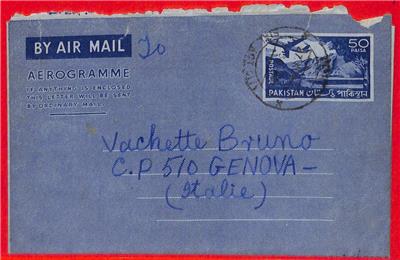 BY AIR MAIL
To
AEROGRAMME
IF ANYTHING IS ENCLOSED
THIS LETTER WILL BE SENT
BY ORDINARY MAIL.
50
PAISA
POSTAGE
PAKISTAN پاکستان
Vachette Bruno
C.P 510 GENOVA-
(Italie)